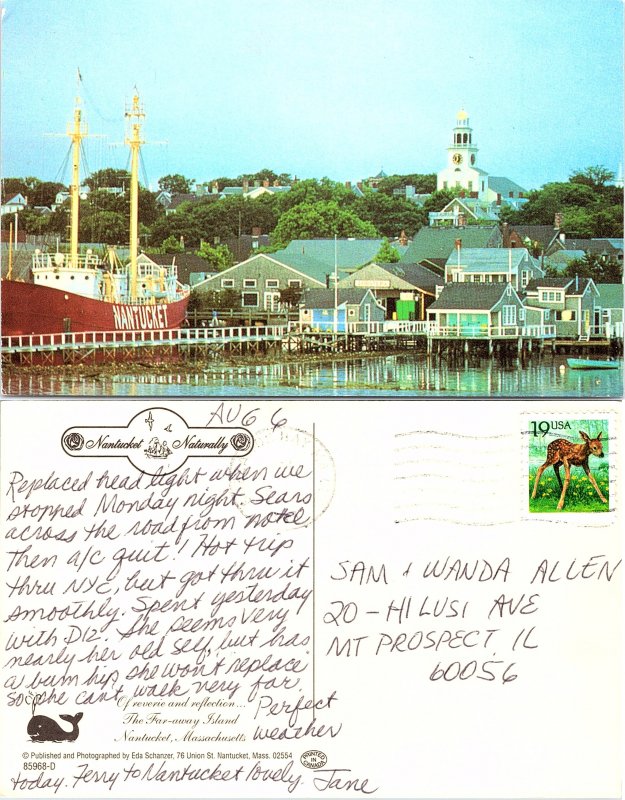 NANTUCKET
AUG 6
Nantucket Naturally
Replaced head light when we
stopped Monday night. Sears
across the road from motel.
Then a/c quit! Hot trip
thru NYC, but got thru it
smoothly. Spent yesterday
with Diz. She seems very
nearly her old self, but has
a bum hip she won't replace
so she can't walk very far.
Perfect
weather
today. Ferry to Nantucket lovely. Jane
Of reverie and reflection...
The Far-away Island
Nantucket, Massachusetts
© Published and Photographed by Eda Schanzer, 76 Union St. Nantucket, Mass. 02554
85968-D
PRINTED IN CANADA
19 USA
SAM + WANDA ALLEN
20-HI LUSI AVE
MT PROSPECT, IL
60056